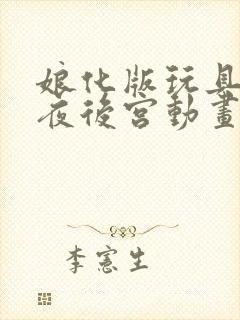 娘化版玩具
夜後宮動畫
李憲生